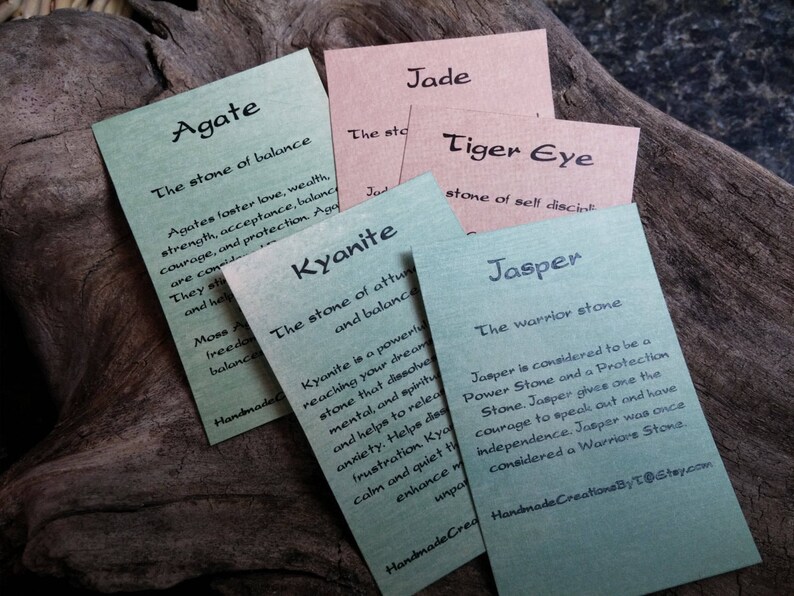 Agate
The stone of balance
Agates foster love, wealth,
strength, acceptance, balance
courage, and protection.
are considered
They
and help
Moss
freedom
balance
Jade
The
Tiger Eye
stone of self
Kyanite
The stone of
and balance
Kyanite is a powerful
reaching your dreams
stone that dissolves
mental, and
and helps to
anxiety. Helps
frustration.
calm and quiet
enhance
Jasper
The warrior stone
Jasper is considered to be a
Power Stone and a Protection
Stone. Jasper gives one the
courage to speak out and have
independence. Jasper was once
considered a Warriors Stone.
HandmadeCreationsByT@Etsy.com